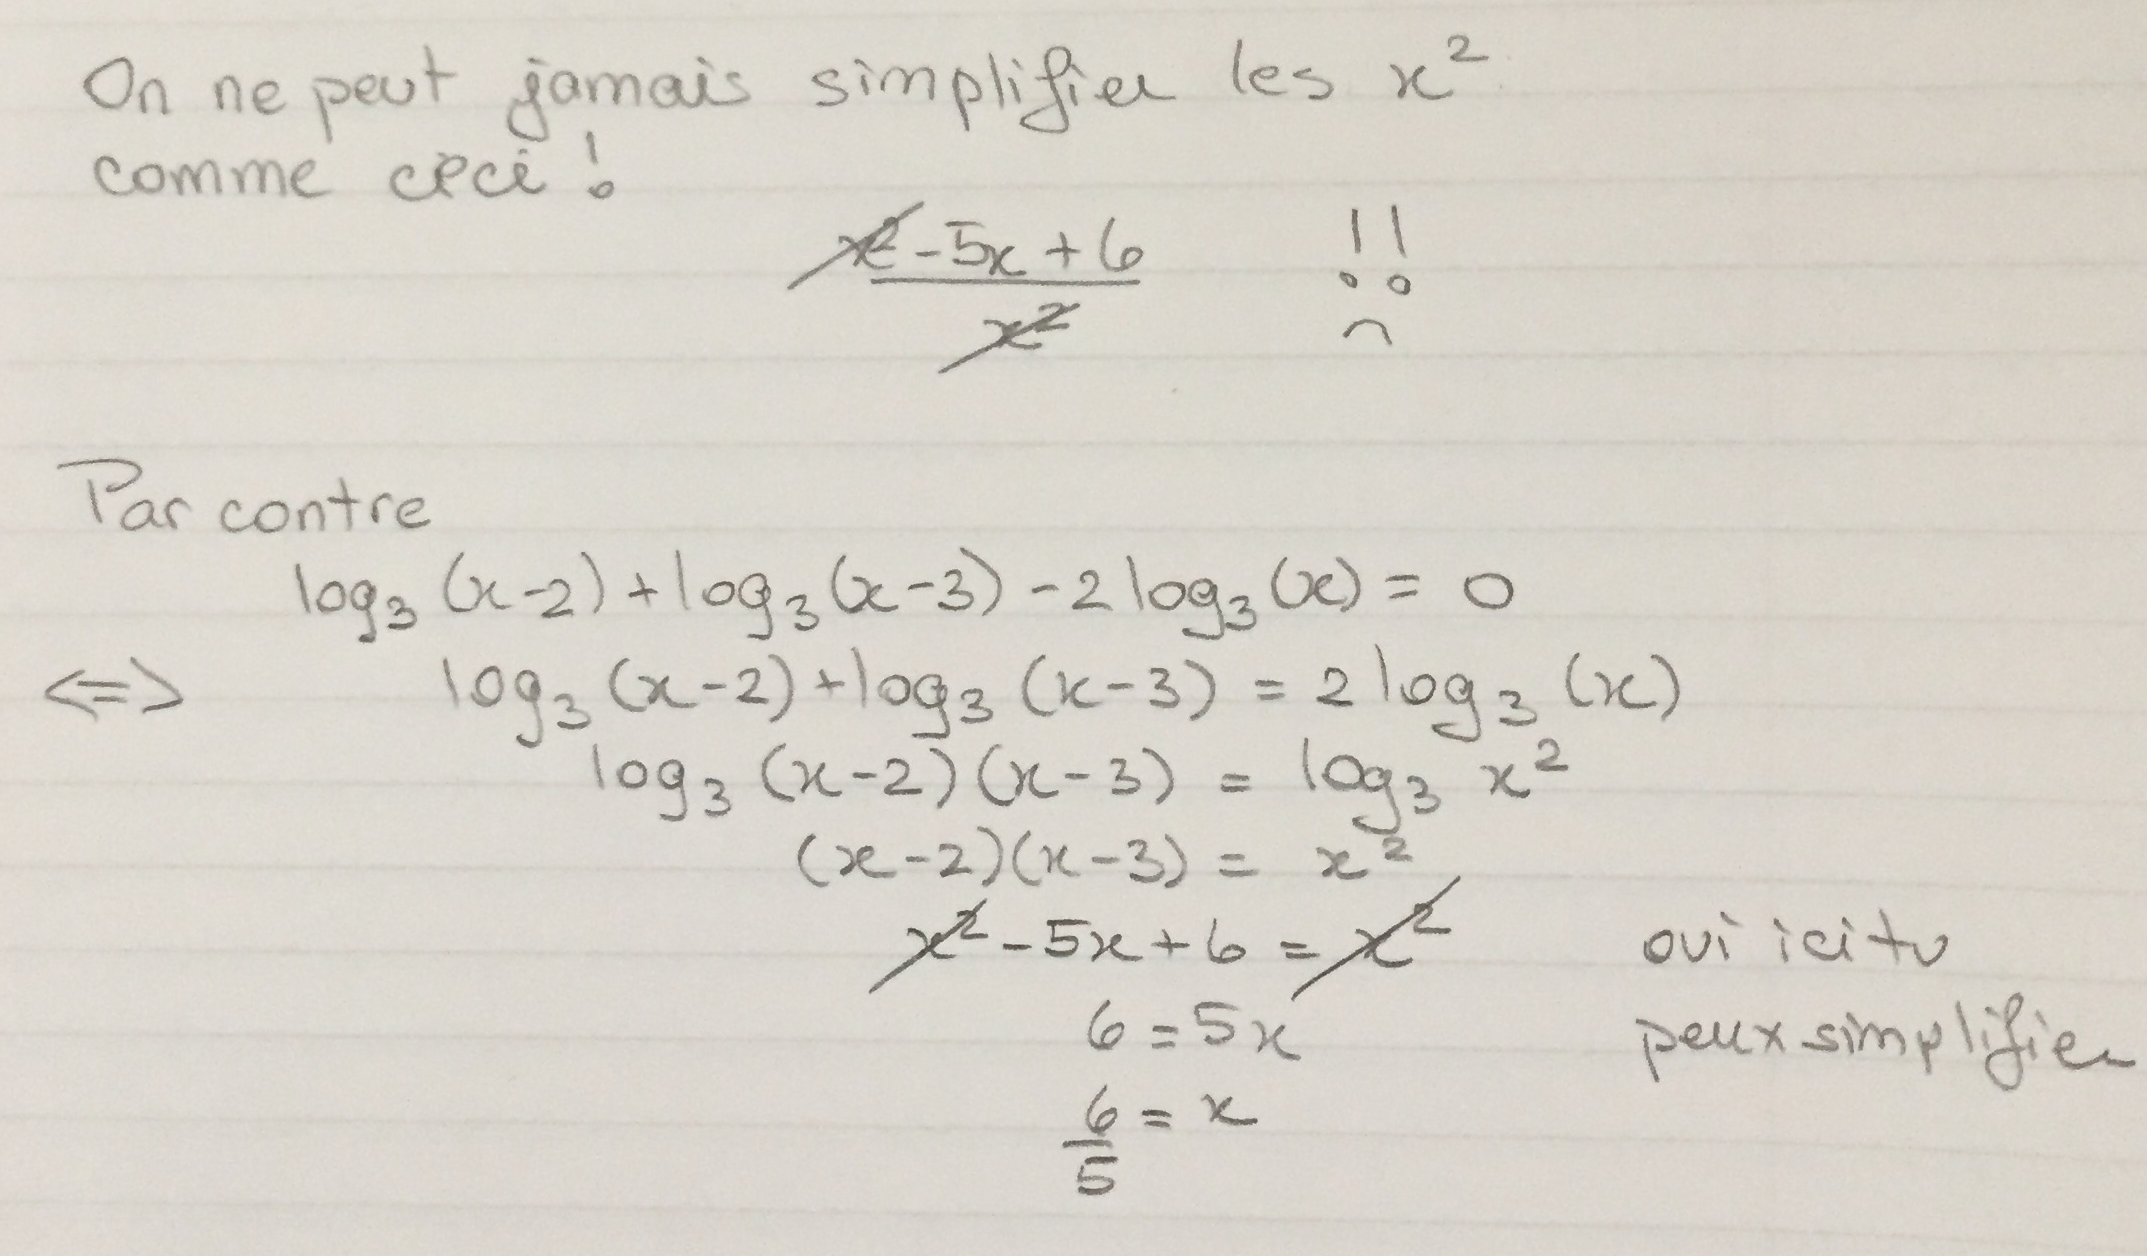 On ne peut jamais simplifier les x²
comme ceci !
x² - 5x + 6 !!
x²
Par contre
log₃ (x-2) + log₃ (x-3) - 2 log₃ (x) = 0
<=> log₃ (x-2) + log₃ (x-3) = 2 log₃ (x)
log₃ (x-2) (x-3) = log₃ x²
(x-2)(x-3) = x²
x² - 5x + 6 = x² oui ici tu
6 = 5x peux simplifier
6 = x
5